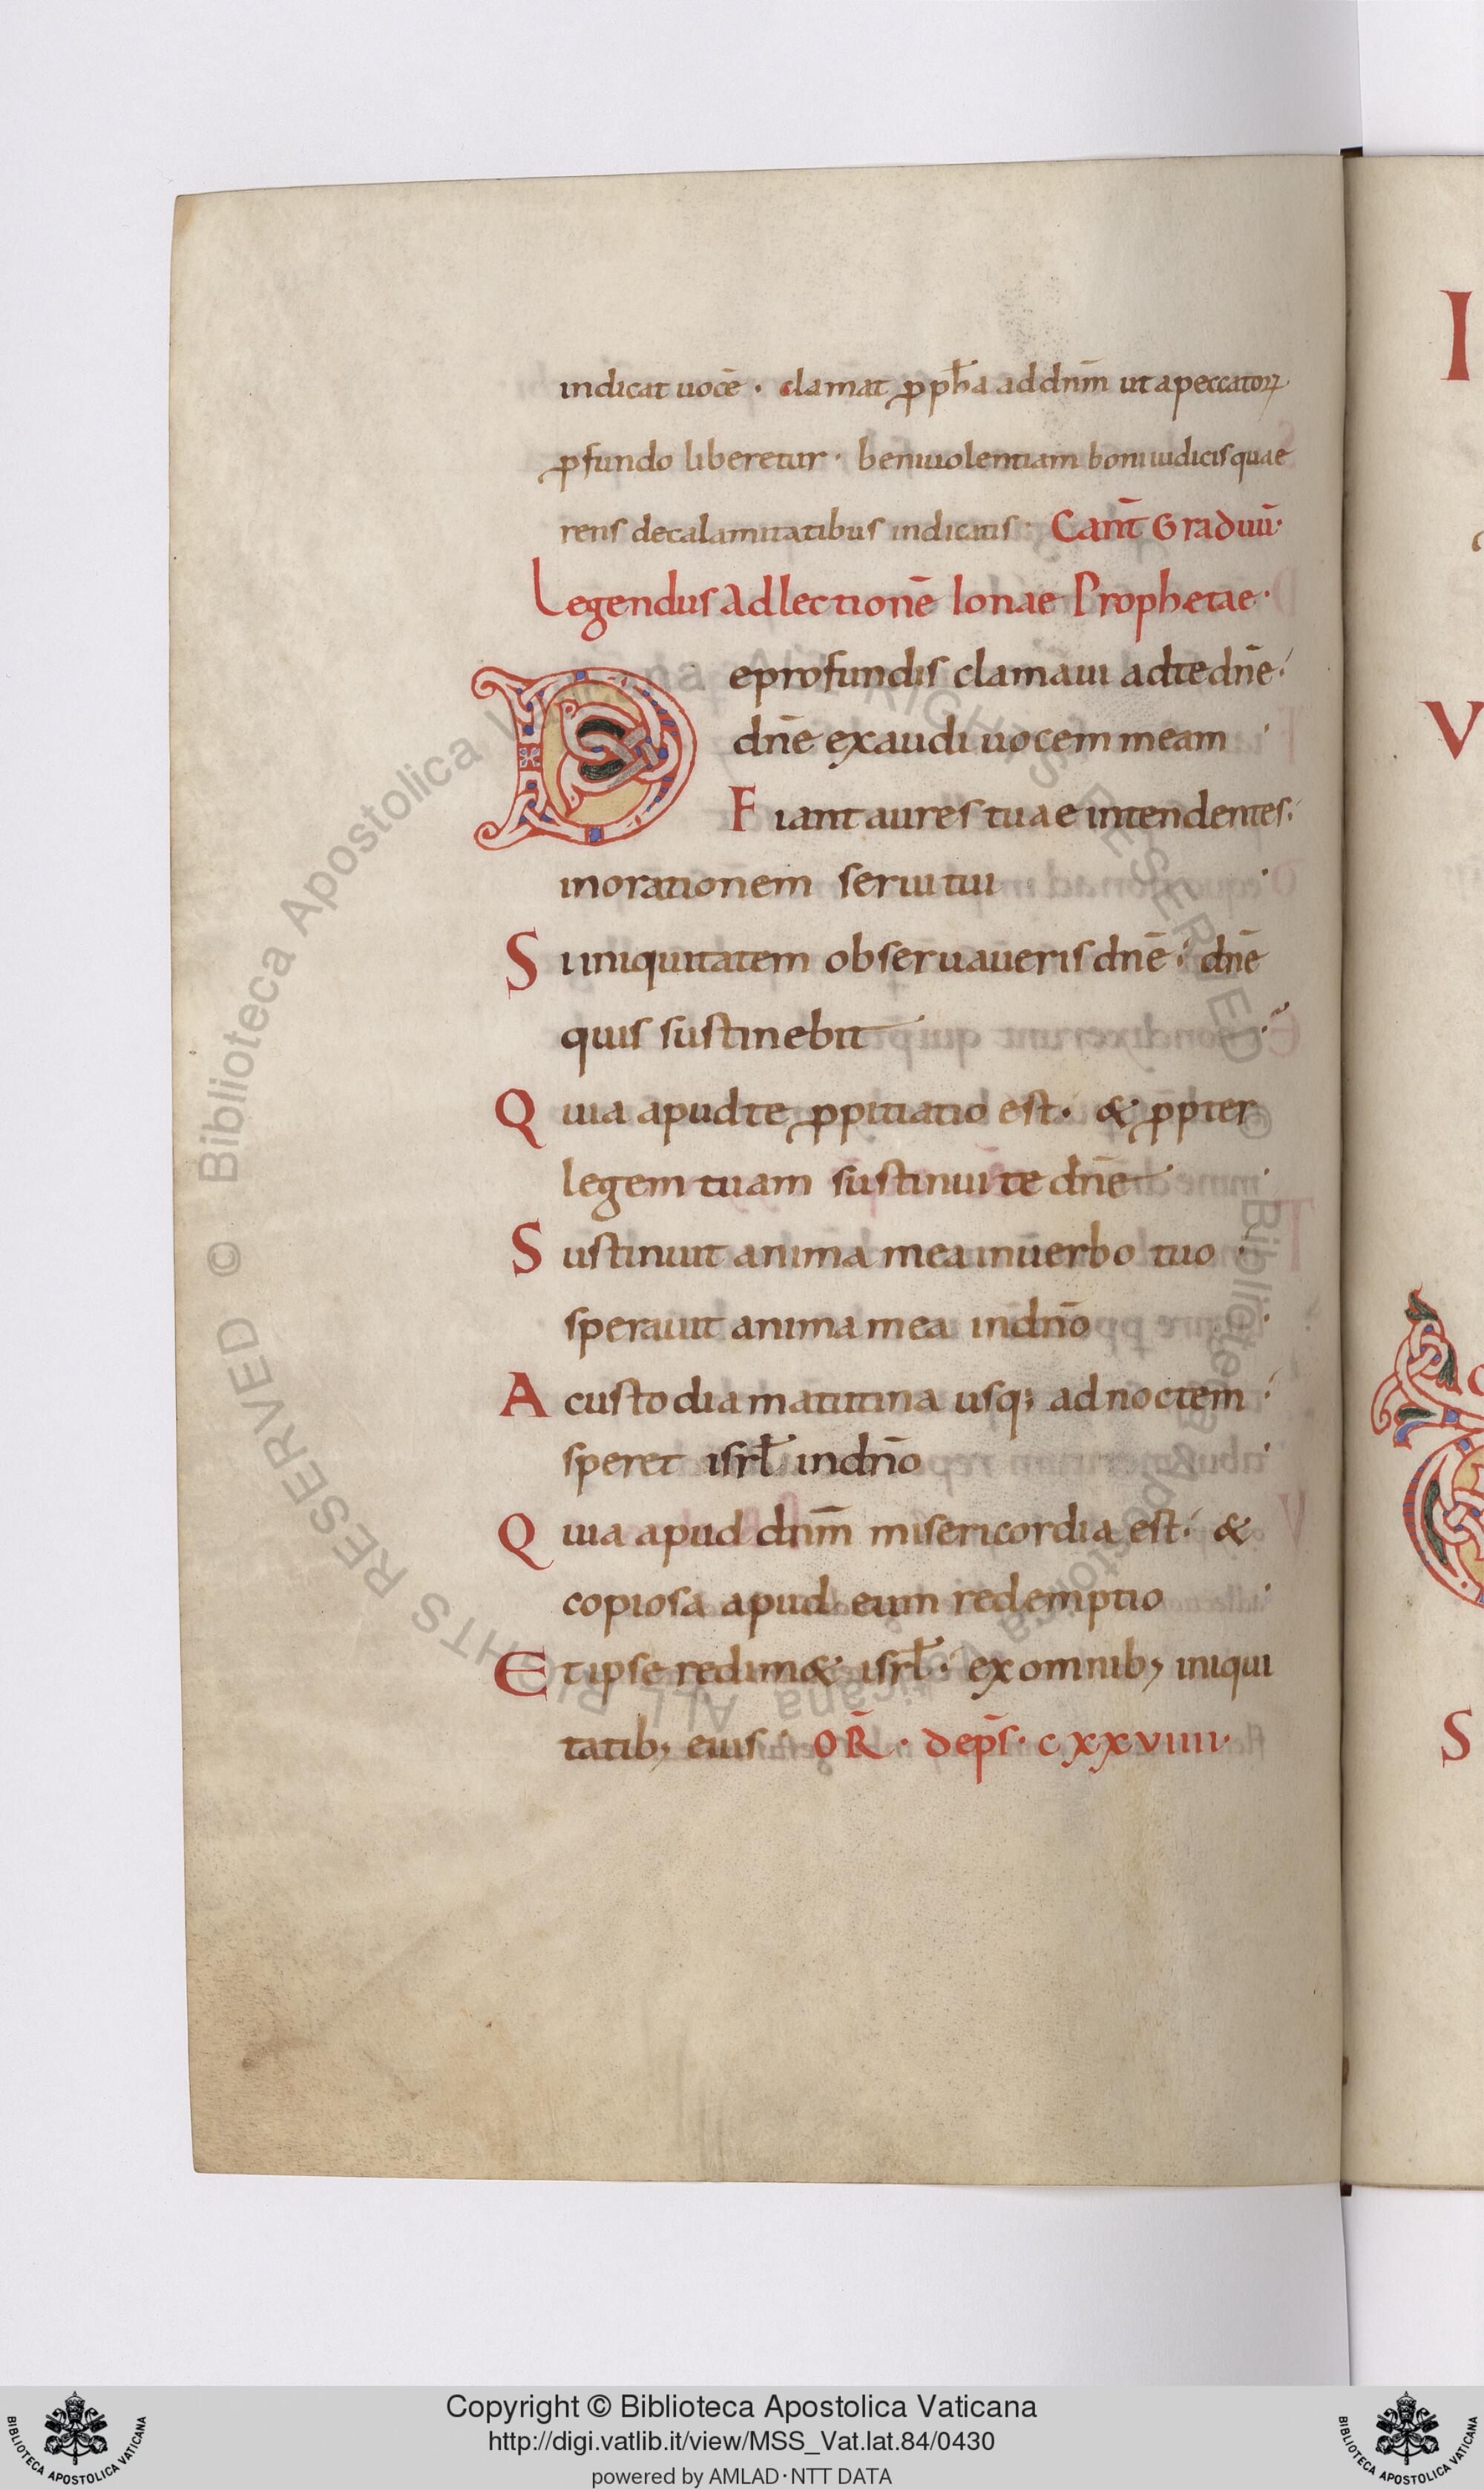 indicat uocē · clamat ꝓ ph̄a ad dnm̄ ut a peccatoꝝ
ꝓfundo liberetur · beniuolentiam boni iudicis quae
rens de calamitatibus indicatis · Cant̄ Graduū·
Legendus Ad lectionē Ionae Prophetae·
De profundis clamaui ad te dn̄e·
dn̄e exaudi uocem meam ·
Fiant aures tuae intendentes·
in orationem serui tui ·
Si iniquitatem obseruaueris dn̄e· dn̄e
quis sustinebit ·
Quia apud te ꝓpitiatio est· & ꝓpter
legem tuam sustinui te dn̄e ·
Sustinuit anima mea in uerbo tuo ·
sperauit anima mea in dn̄o ·
A custodia matutina usq; ad noctem ·
speret isrł in dn̄o ·
Quia apud dnm̄ misericordia est· &
copiosa apud eum redemptio ·
Et ipse redim& isrł· ex omnib; iniqui
tatib; eius · OR̄ · de ps̄· cxxviiii·
I
V
S
© Biblioteca Apostolica Vaticana ALL RIGHTS RESERVED © Biblioteca Apostolica Vaticana ALL RIGHTS RESERVED
BIBLIOTECA APOSTOLICA VATICANA
Copyright © Biblioteca Apostolica Vaticana
http://digi.vatlib.it/view/MSS_Vat.lat.84/0430
powered by AMLAD·NTT DATA
BIBLIOTECA APOSTOLICA VATICANA